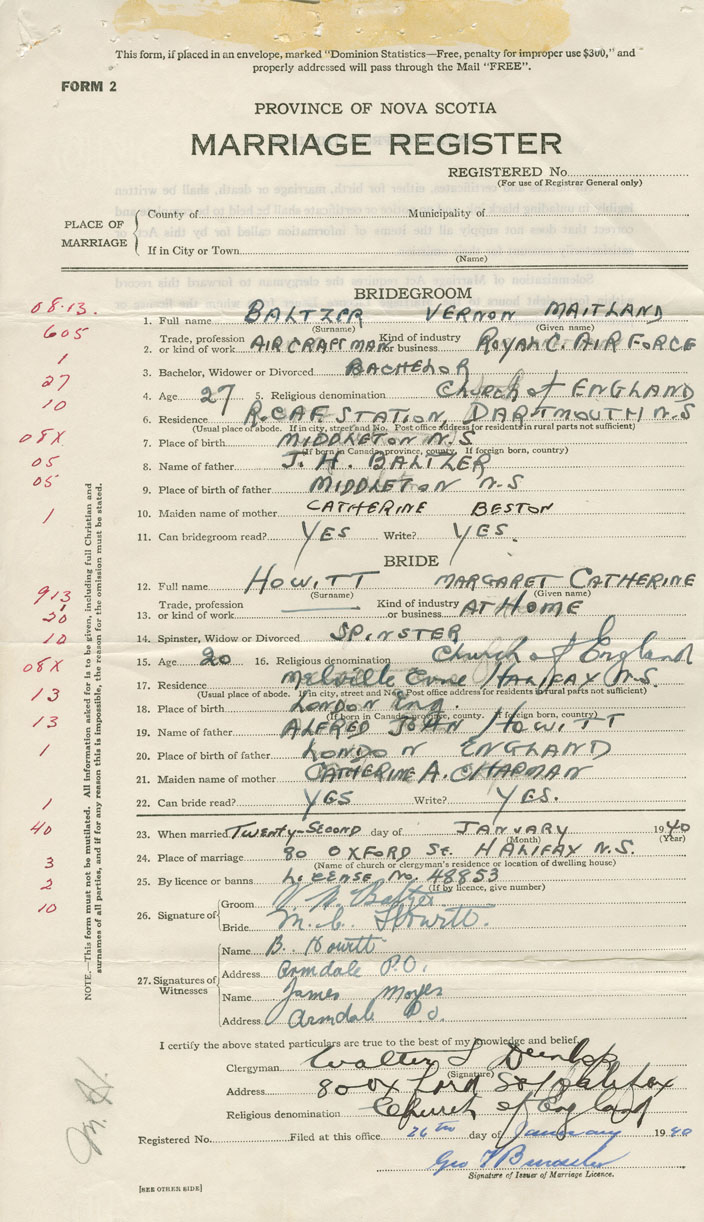 This form, if placed in an envelope, marked "Dominion Statistics—Free, penalty for improper use $300," and
properly addressed will pass through the Mail "FREE".
FORM 2
PROVINCE OF NOVA SCOTIA
MARRIAGE REGISTER
REGISTERED No.
(For use of Registrar General only)
PLACE OF MARRIAGE
County of
Municipality of
If in City or Town
(Name)
BRIDEGROOM
08.13.
1. Full name BALTZER VERNON MAITLAND
(Surname) (Given name)
605
2. Trade, profession or kind of work AIRCRAFTMAN Kind of industry or business ROYAL C. AIR FORCE
1
3. Bachelor, Widower or Divorced BACHELOR
27
4. Age 27 5. Religious denomination Church of ENGLAND
10
6. Residence R.C.A.F STATION, DARTMOUTH N.S
(Usual place of abode. If in city, street and No. Post office address for residents in rural parts not sufficient)
08X
7. Place of birth MIDDLETON N.S
(If born in Canada, province, county. If foreign born, country)
05
8. Name of father J. H. BALTZER
05
9. Place of birth of father MIDDLETON N.S
1
10. Maiden name of mother CATHERINE BESTON
11. Can bridegroom read? YES Write? YES.
BRIDE
913
12. Full name HOWITT MARGARET CATHERINE
(Surname) (Given name)
20
13. Trade, profession or kind of work Kind of industry or business AT HOME
10
14. Spinster, Widow or Divorced SPINSTER
08X
15. Age 20 16. Religious denomination Church of England
17. Residence Melville Cove HALIFAX N.S.
(Usual place of abode. If in city, street and No. Post office address for residents in rural parts not sufficient)
13
18. Place of birth LONDON Eng.
(If born in Canada, province, county. If foreign born, country)
13
19. Name of father ALFRED JOHN HOWITT
1
20. Place of birth of father LONDON ENGLAND
21. Maiden name of mother CATHERINE A. CHAPMAN
1
22. Can bride read? YES Write? YES.
40
23. When married TWENTY-SECOND day of JANUARY 1940
(Month) (Year)
3
24. Place of marriage 80 OXFORD St. HALIFAX N.S.
(Name of church or clergyman's residence or location of dwelling house)
2
25. By licence or banns LICENSE No. 48853
(If by licence, give number)
10
26. Signature of
Groom V. M. Baltzer
Bride M. C. Howitt.
27. Signatures of Witnesses
Name B. Howitt
Address Armdale P.O.
Name James Moyes
Address Armdale P.O.
NOTE.—This form must not be mutilated. All information asked for is to be given, including full Christian and
surnames of all parties, and if for any reason this is impossible, the reason for the omission must be stated.
I certify the above stated particulars are true to the best of my knowledge and belief.
Clergyman Walter S Dunlop
(Signature)
Address 80 Oxford St / Halifax
Religious denomination Church of England
Registered No. Filed at this office 26th day of January 1940
Geo
Signature of Issuer of Marriage Licence.
M. H.
[SEE OTHER SIDE]